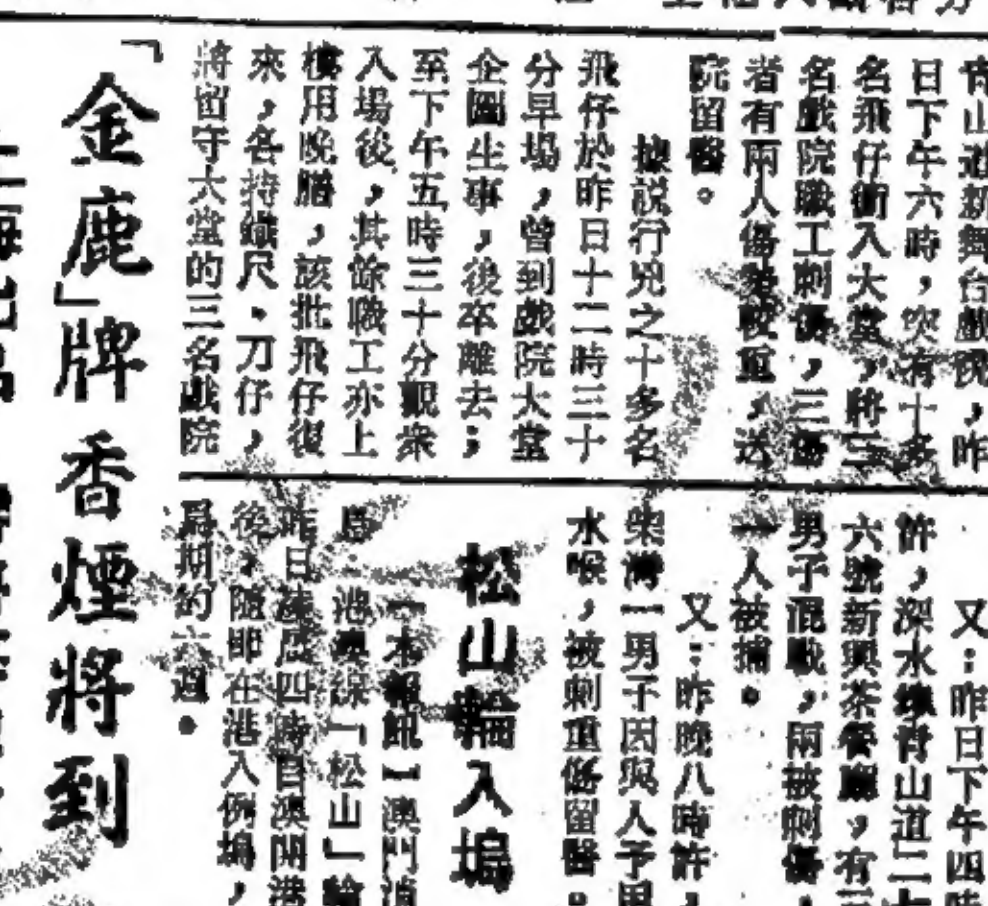 青山道新舞台戲院，昨
日下午六時，突有十多
名飛仔衝入大堂，將三
名戲院職工刺傷，三傷
者有兩人傷勢較重，送
院留醫。
據説行兇之十多名
飛仔於昨日十二時三十
分早場，曾到戲院大堂
企圖生事，後卒離去；
至下午五時三十分觀衆
入場後，其餘職工亦上
樓用晚膳，該批飛仔復
來，各持鐵尺、刀仔，
將留守大堂的三名戲院
又：昨日下午四時
許，深水埗青山道二七
六號新興茶餐廳，有三
男子混戰，兩被刺傷，
一人被捕。
又：昨晚八時許，
柴灣一男子因與人予盾
水喉，被刺重傷留醫。
松山輪入塢
【本報訊】澳門消
息：港澳線「松山」輪
昨日凌晨四時自澳開港
後，隨即在港入例塢，
爲期約六週。
「金鹿」牌香煙將到